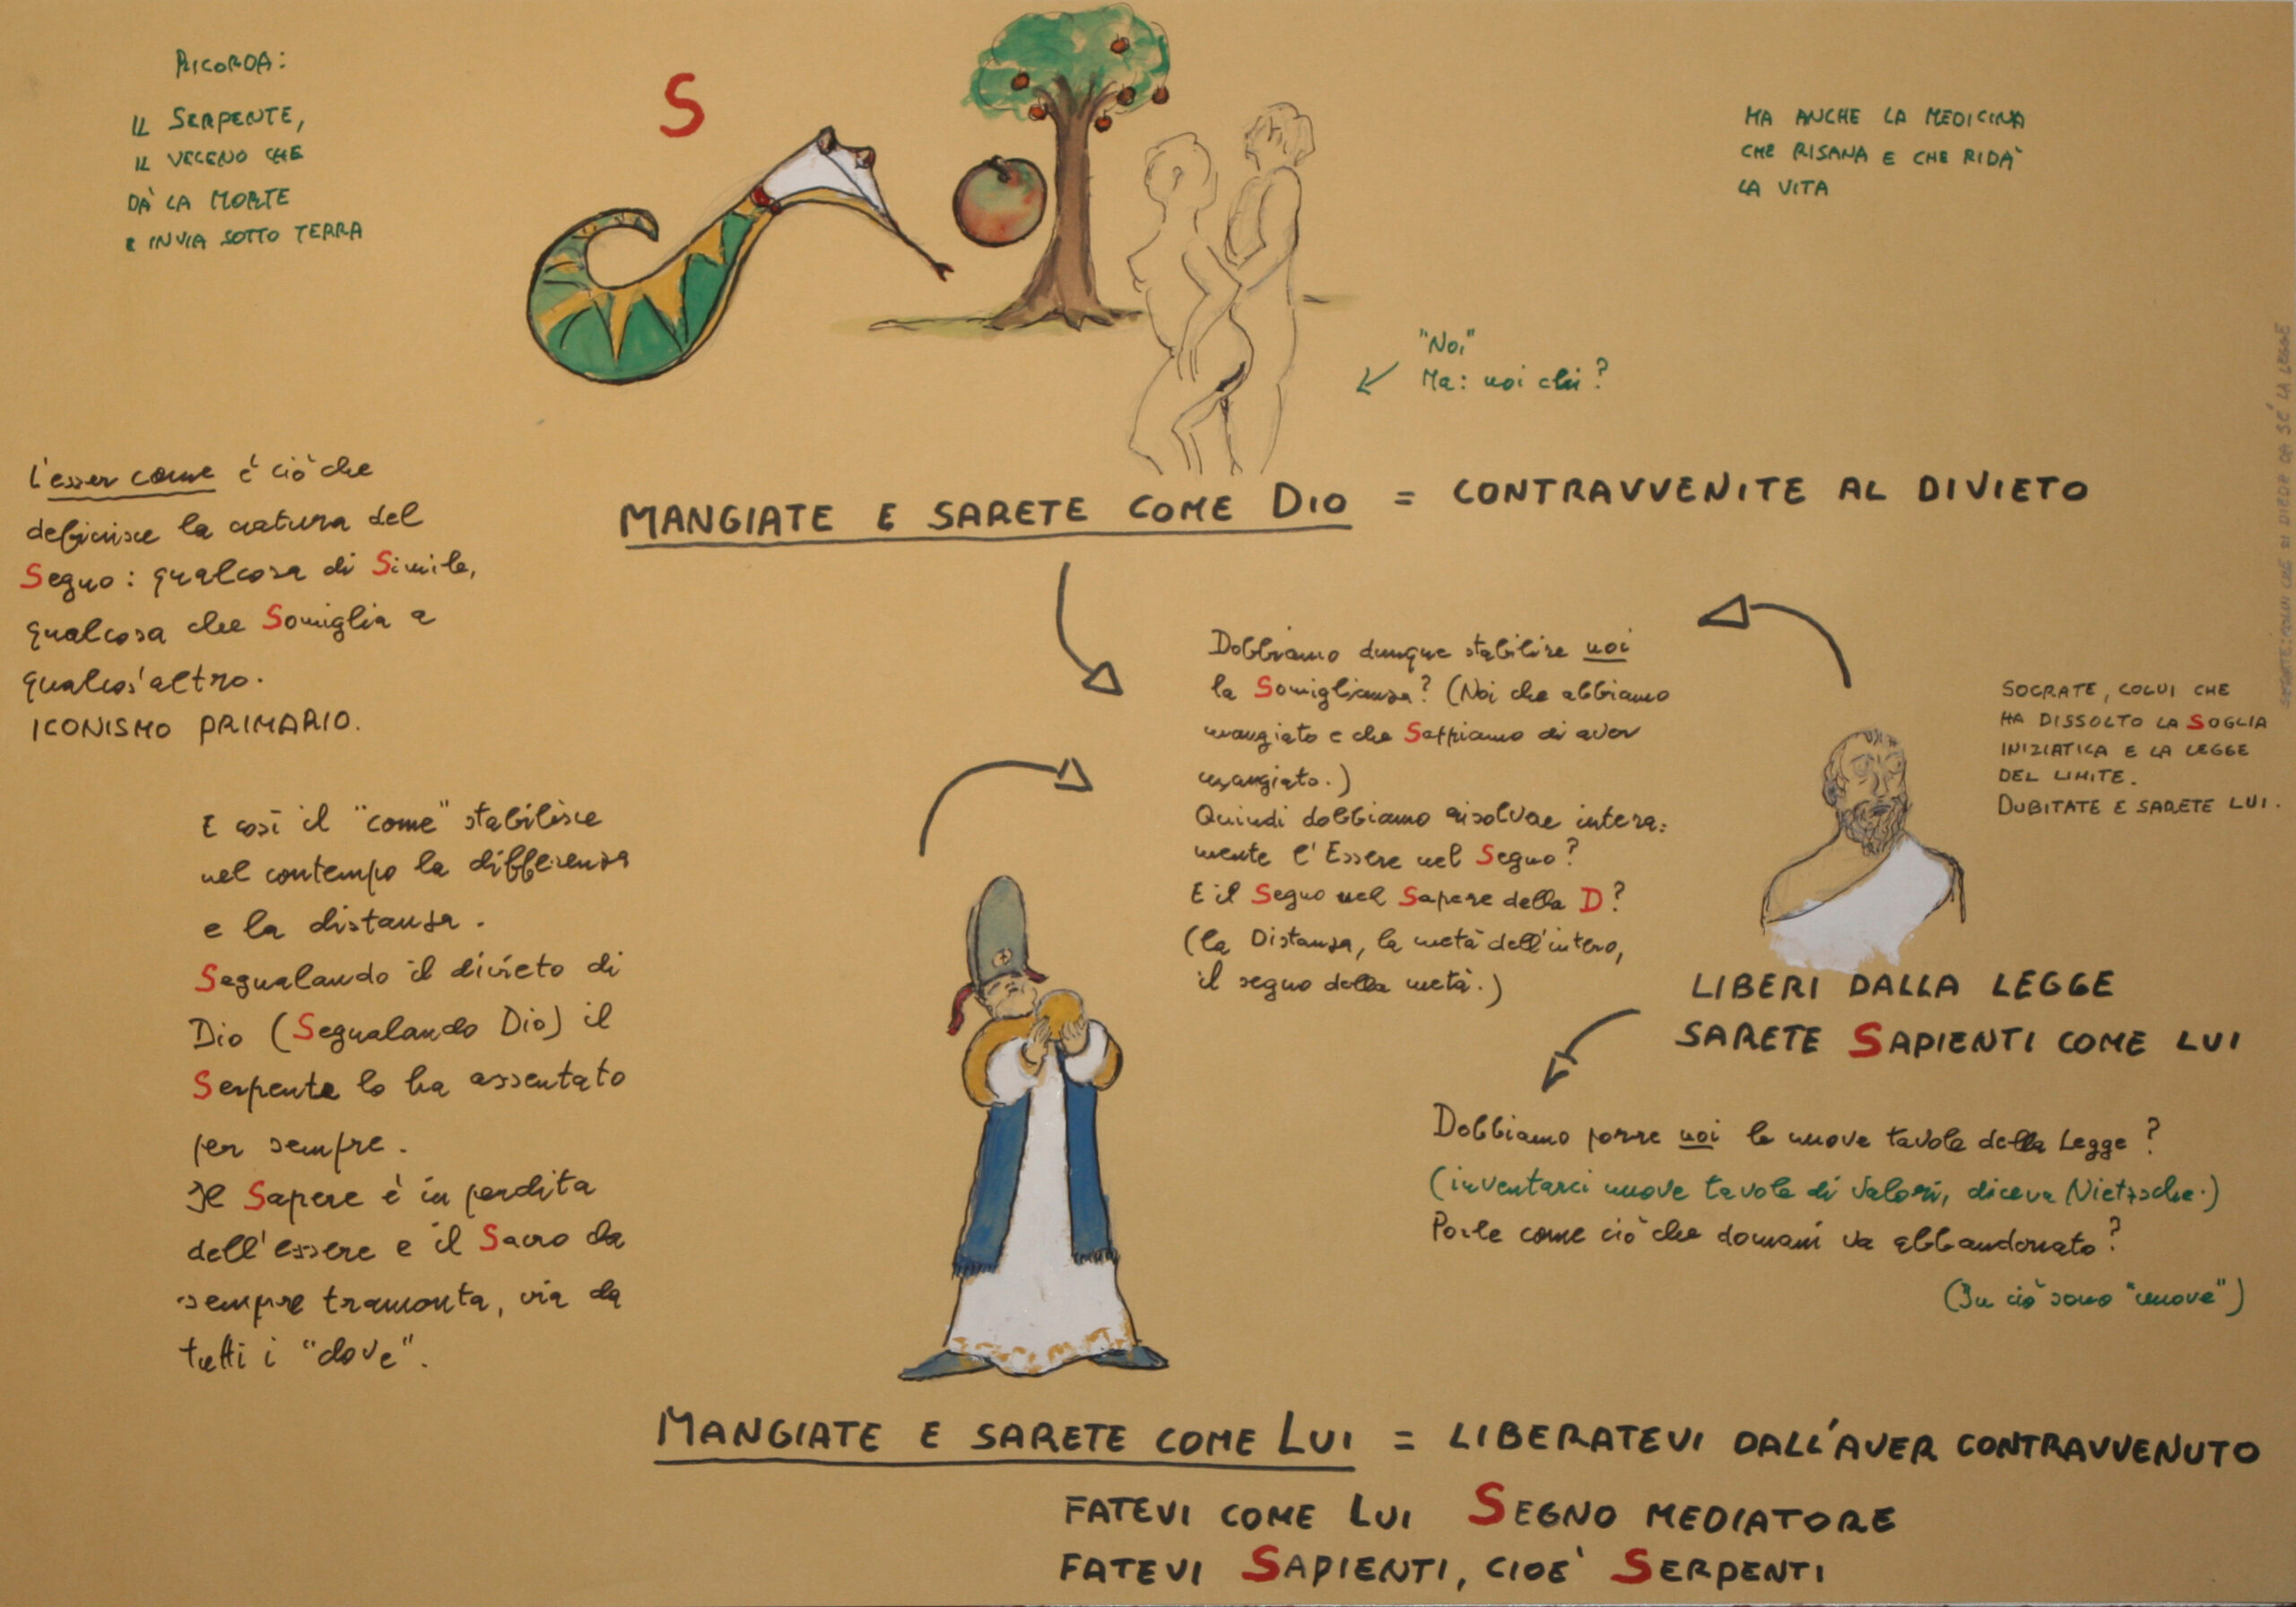 RICORDA:
IL SERPENTE,
IL VELENO CHE
DÀ LA MORTE
E INVIA SOTTO TERRA
S
MA ANCHE LA MEDICINA
CHE RISANA E CHE RIDÀ
LA VITA
"Noi"
Ma: noi chi?
MANGIATE E SARETE COME DIO = CONTRAVVENITE AL DIVIETO
L'esser come è ciò che
definisce la natura del
Segno: qualcosa di Simile,
qualcosa che Somiglia a
qualcos'altro.
ICONISMO PRIMARIO.
E così il "come" stabilisce
nel contempo la differenza
e la distanza.
Segnalando il divieto di
Dio (Segnalando Dio) il
Serpente lo ha assentato
per sempre.
Il Sapere è in perdita
dell'essere e il Sacro da
sempre tramonta, via da
tutti i "dove".
Dobbiamo dunque stabilire noi
la Somiglianza? (Noi che abbiamo
mangiato e che Sappiamo di aver
mangiato.)
Quindi dobbiamo risolvere intera:
mente l'Essere nel Segno?
E il Segno nel Sapere della D?
(la Distanza, la metà dell'intero,
il segno della metà.)
SOCRATE, COLUI CHE
HA DISSOLTO LA SOGLIA
INIZIATICA E LA LEGGE
DEL LIMITE.
DUBITATE E SARETE LUI.
COLUI CHE SI DIEDE DA SÉ LA LEGGE
LIBERI DALLA LEGGE
SARETE SAPIENTI COME LUI
Dobbiamo porre noi le nuove tavole della Legge?
(inventarci nuove tavole di Valori, diceva Nietzsche.)
Porle come ciò che domani va abbandonato?
(In ciò sono "nuove")
MANGIATE E SARETE COME LUI = LIBERATEVI DALL'AVER CONTRAVVENUTO
FATEVI COME LUI SEGNO MEDIATORE
FATEVI SAPIENTI, CIOÈ SERPENTI